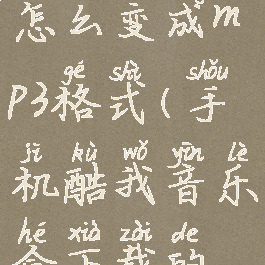 怎么变成m
gé shì shǒu
p3格式(手
jī kù wǒ yīn lè
机酷我音乐
hé xià zài de